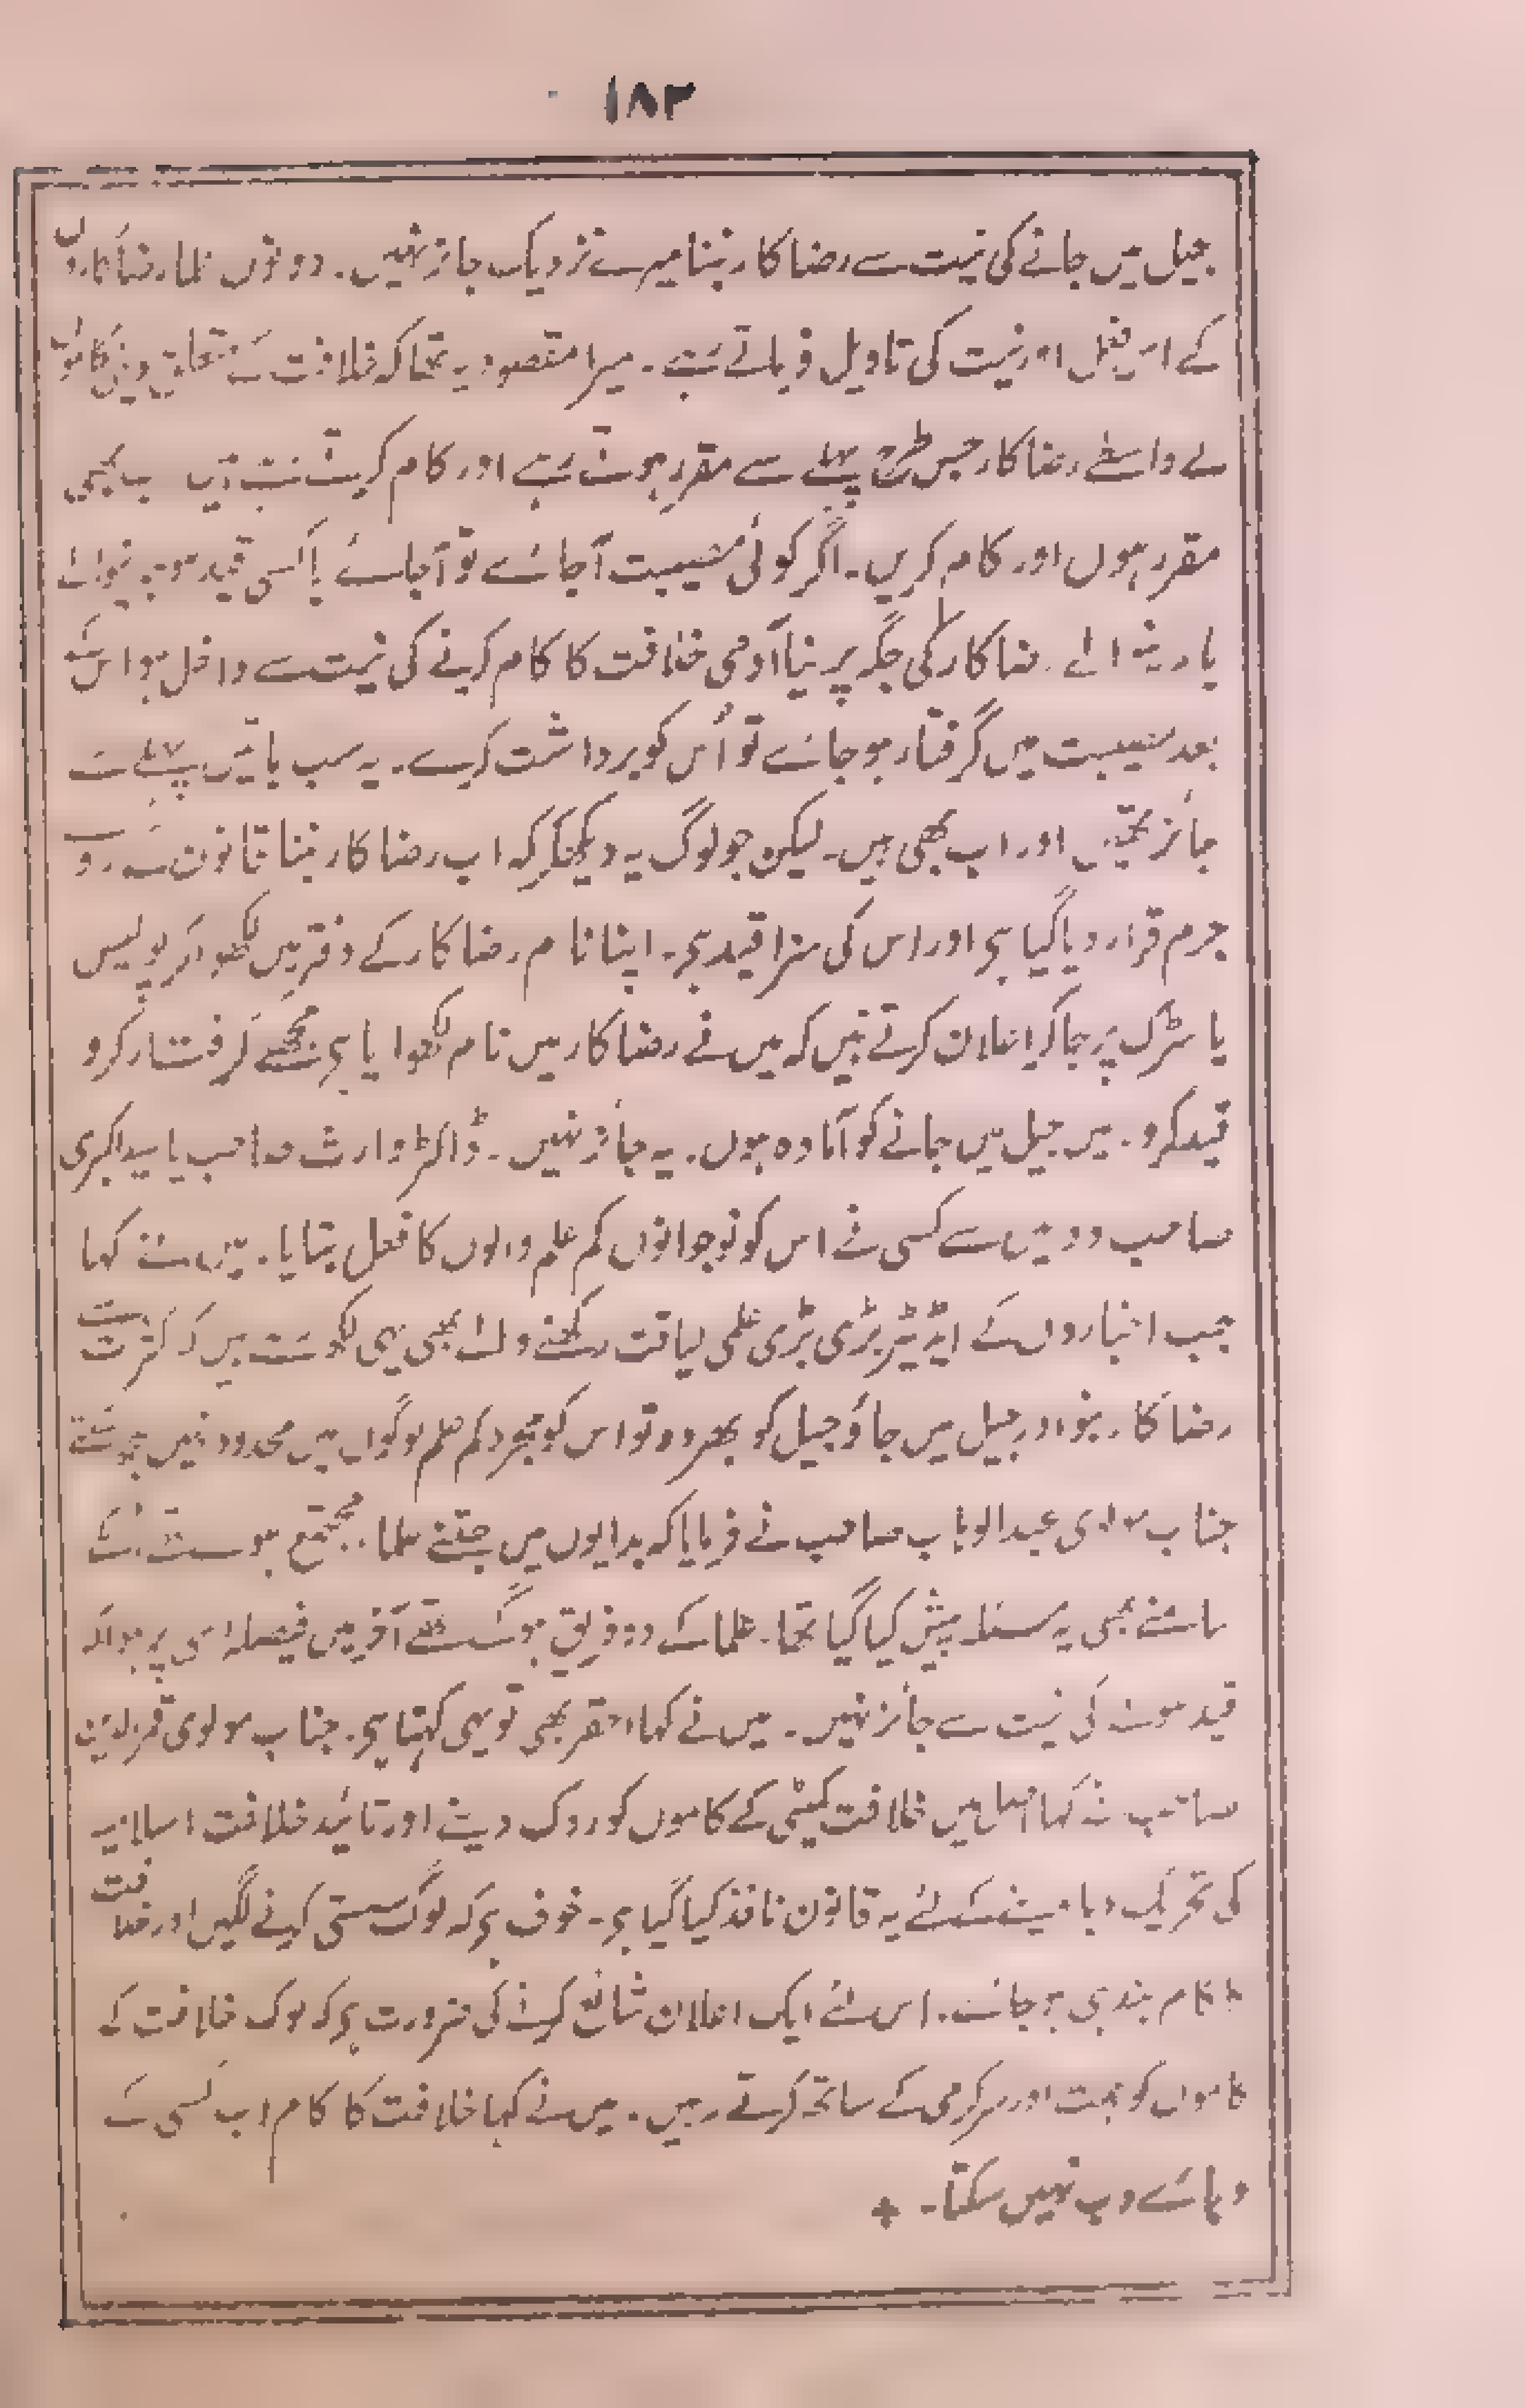 ۱۸۳
جیل میں جانے کی نیت سے رضا کار بننا میرے نزدیک جائز نہیں۔ دونوں علما رضا کاروں
کے اس فعل اور نیت کی تاویل فرماتے رہے۔ میرا مقصود یہ تھا کہ خلافت کے متعلق دینی کاموں
کے واسطے رضا کار جس طرح پہلے سے مقرر ہوتے رہے اور کام کرتے رہے ہیں اب بھی
مقرر ہوں اور کام کریں۔ اگر کوئی مصیبت آ جائے تو آ جائے یا کسی قید ہو جانیوالے
یا مرنے والے رضا کار کی جگہ پر نیا آدمی خلافت کا کام کرنے کی نیت سے داخل ہو اس کے
بعد مصیبت میں گرفتار ہو جائے تو اُس کو برداشت کرے۔ یہ سب باتیں پہلے سے
جائز تھیں اور اب بھی ہیں۔ لیکن جو لوگ یہ دیکھکر کہ اب رضا کار بننا قانون کے رو سے
جرم قرار دیا گیا ہی اور اس کی سزا قید ہی۔ اپنا نام رضا کار کے دفتر میں لکھوا کر پولیس
یا سڑک پر جا کر اعلان کرتے ہیں کہ میں نے رضا کار میں نام لکھوایا ہی مجھے گرفتار کرو
قید کرو۔ میں جیل میں جانے کو آمادہ ہوں۔ یہ جائز نہیں۔ ڈاکٹر وارث صاحب یا سید اکبری
صاحب دو میں سے کسی نے اس کو نوجوانوں کم علم والوں کا فعل بتایا۔ میں نے کہا
جب اخباروں کے ایڈیٹر بڑی بڑی علمی لیاقت رکھنے والے بھی یہی لکھ رہے ہیں کہ کثرت سے
رضا کار بنو اور جیل میں جاؤ جیل کو بھر دو تو اس کو مجرد کم علم لوگوں میں محدود نہیں کر سکتے
جناب مولوی عبد الوہاب صاحب نے فرمایا کہ بدایوں میں جتنے علما مجتمع ہوئے تھے اُن کے
سامنے بھی یہ مسئلہ پیش کیا گیا تھا۔ علما کے دو فریق ہو گئے تھے آخر میں فیصلہ اسی پر ہوا کہ
قید ہونے کی نیت سے جائز نہیں۔ میں نے کہا احقر بھی تو یہی کہتا ہی۔ جناب مولوی قمر الدین
صاحب نے کہا اصل میں خلافت کمیٹی کے کاموں کو روک دینے اور تائید خلافت اسلامیہ
کی تحریک دبا دینے کے لئے یہ قانون نافذ کیا گیا ہی۔ خوف ہی کہ لوگ سستی کرنے لگیں اور خلافت
کا کام بند ہی ہو جائے۔ اس لئے ایک اعلان شائع کرنے کی ضرورت ہی کہ لوگ خلافت کے
کاموں کو ہمت اور سرگرمی کے ساتھ کرتے رہیں۔ میں نے کہا خلافت کا کام اب کسی کے
دبائے دب نہیں سکتا۔